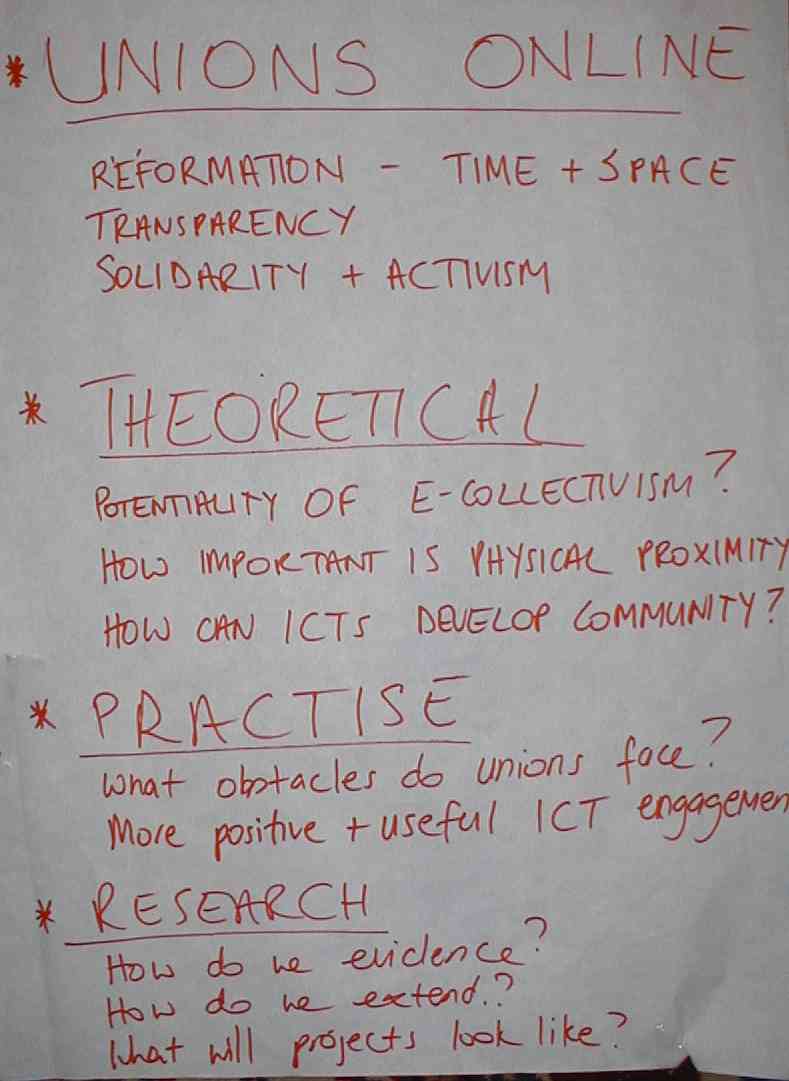 * UNIONS ONLINE
REFORMATION - TIME + SPACE
TRANSPARENCY
SOLIDARITY + ACTIVISM
* THEORETICAL
POTENTIALITY OF E-COLLECTIVISM?
HOW IMPORTANT IS PHYSICAL PROXIMITY
HOW CAN ICTS DEVELOP COMMUNITY?
* PRACTISE
What obstacles do unions face?
More positive + useful ICT engagemen
* RESEARCH
How do we evidence?
How do we extend.?
What will projects look like?